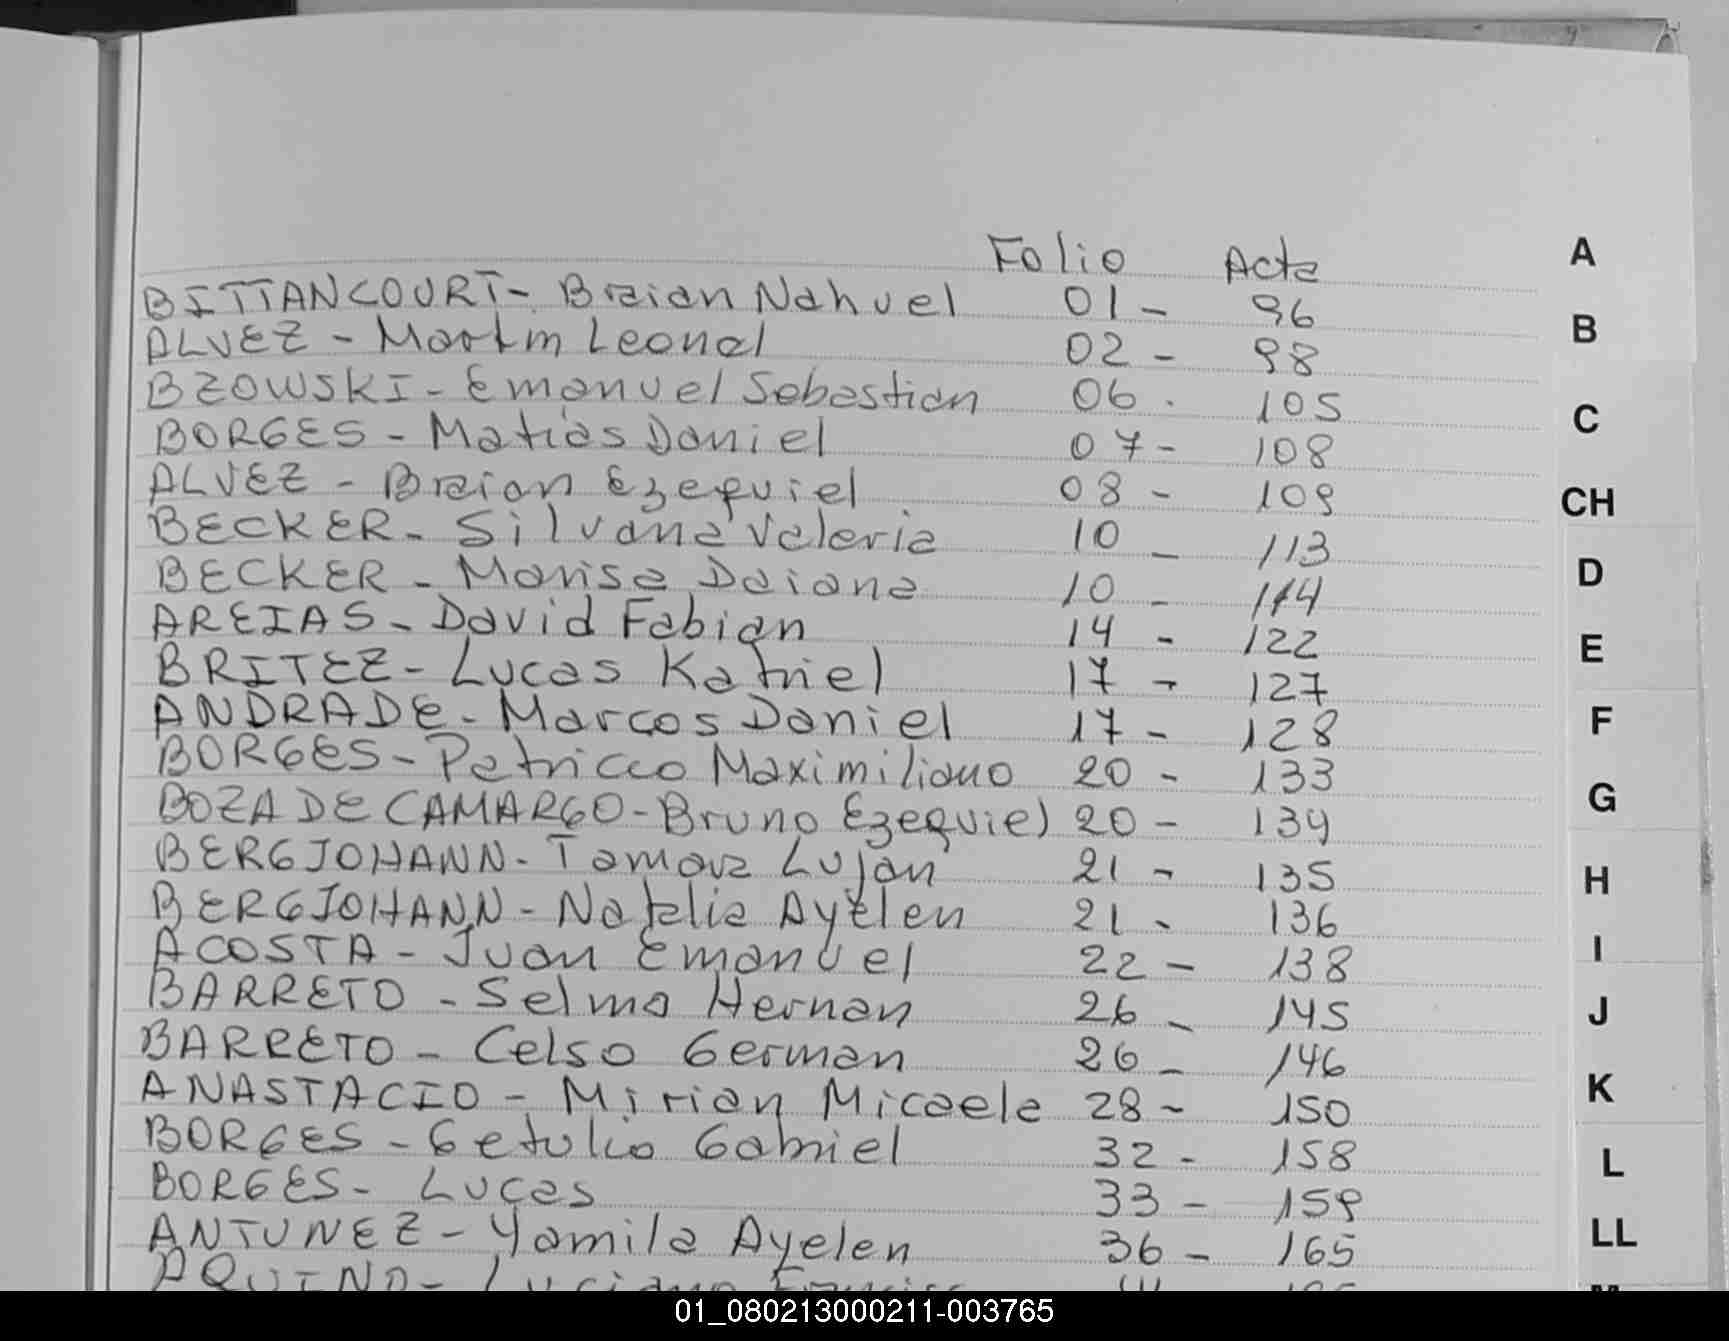 Folio Acta A
BITTANCOURT - Braian Nahuel 01 - 96
ALVEZ - Martin Leonel 02 - 98 B
BZOWSKI - Emanuel Sebastian 06 . 105
BORGES - Matias Daniel 07 - 108 C
ALVEZ - Braian Ezequiel 08 - 109 CH
BECKER - Silvana Valeria 10 - 113
BECKER - Marisa Daiana 10 - 114 D
AREIAS - David Fabian 14 - 122 E
BRITEZ - Lucas Katriel 17 - 127
ANDRADE - Marcos Daniel 17 - 128 F
BORGES - Patricco Maximiliano 20 - 133
BOZA DE CAMARGO - Bruno Ezequiel 20 - 134 G
BERGJOHANN - Lujan 21 - 135 H
BERGJOHANN - Natalia Ayelen 21 - 136
ACOSTA - Juan Emanuel 22 - 138 I
BARRETO - Selmo Hernan 26 - 145 J
BARRETO - Celso German 26 - 146
ANASTACIO - Mirian Micaela 28 - 150 K
BORGES - Getulio Gabriel 32 - 158 L
BORGES - Lucas 33 - 159
ANTUNEZ - Yamila Ayelen 36 - 165 LL
AQUINO - Luciano
01_080213000211-003765